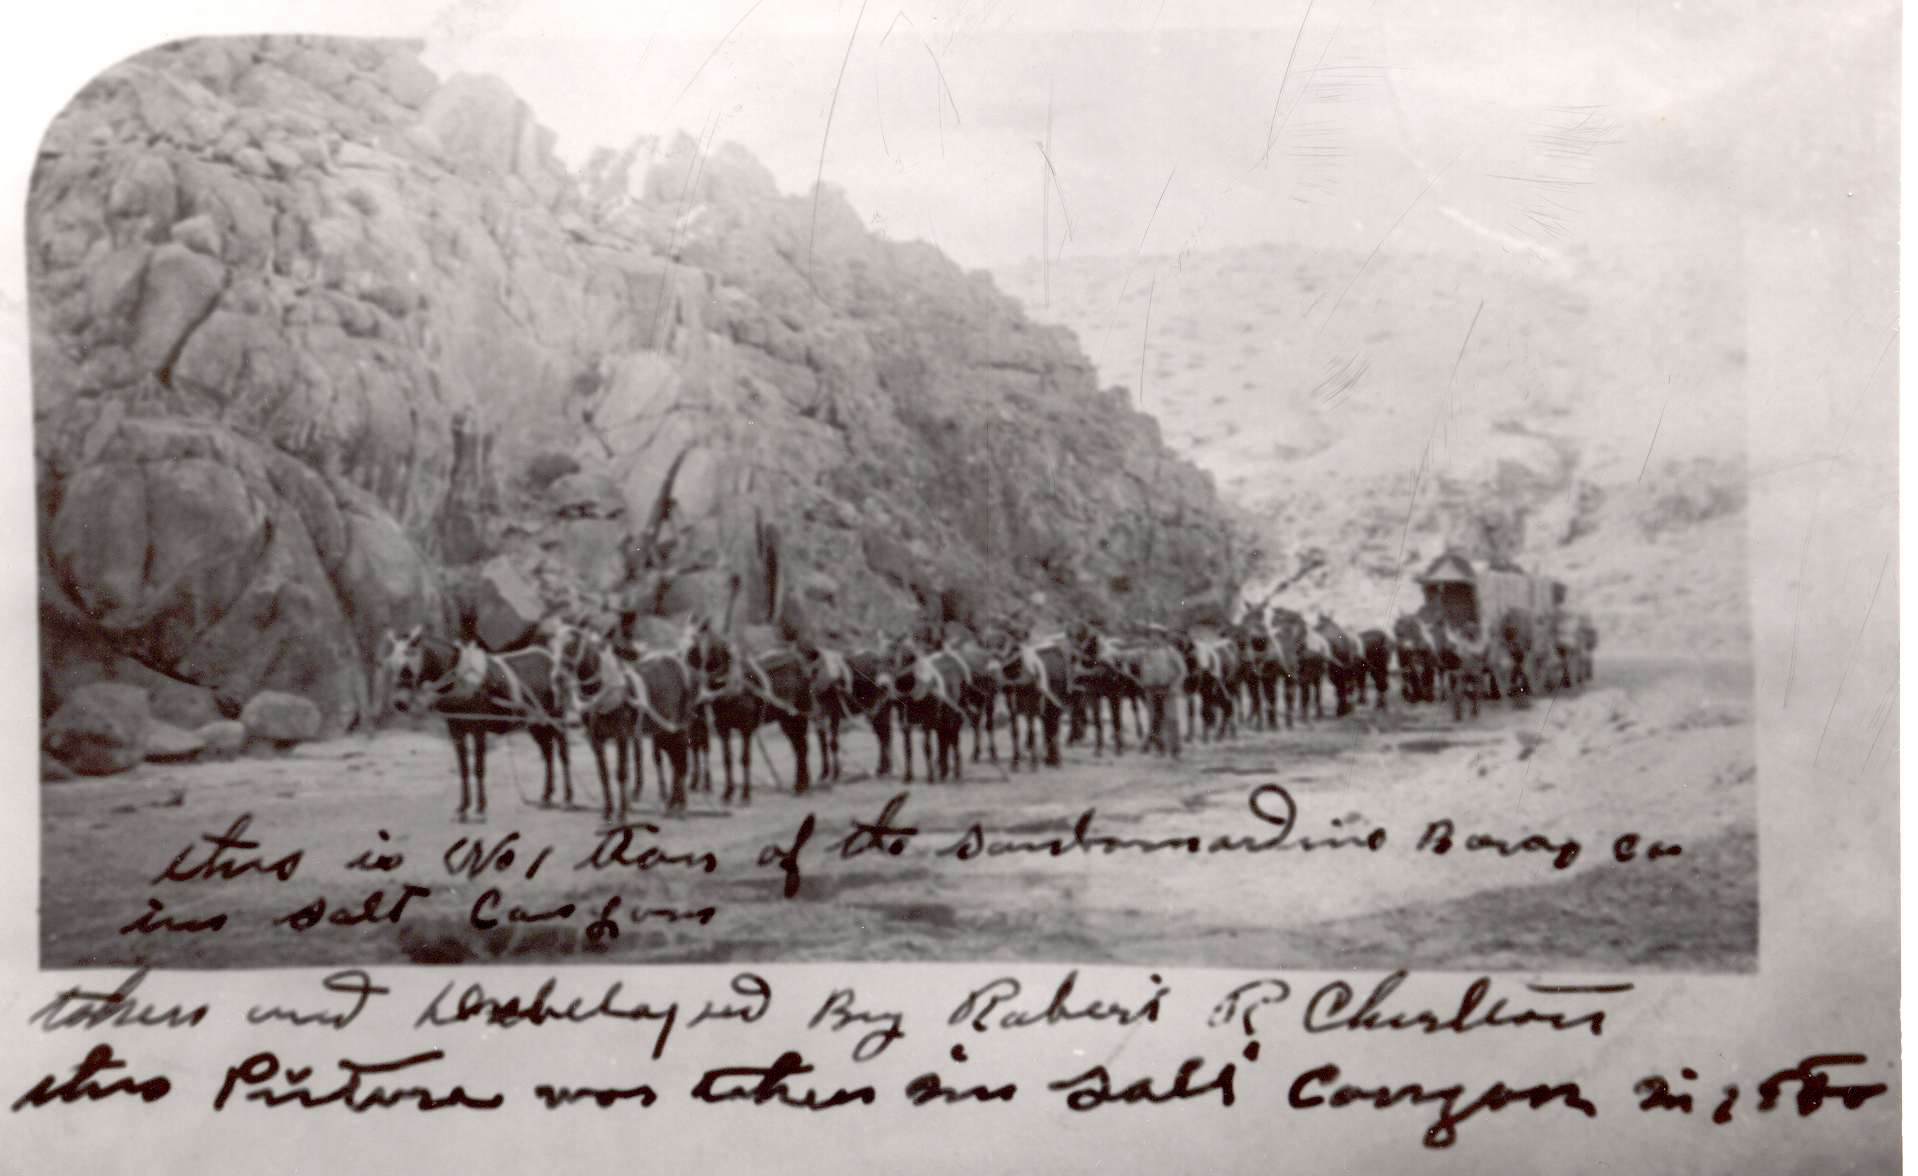 this is No 1 team of the Sanbernardino Borax co
in salt Canyon
taken and Develayed By Robert R Charlton
this Picture was taken in Salt Canyon in